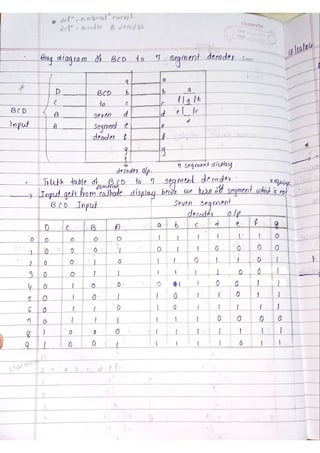 Any diagram of BCD to 7 segment decoder :-
a a
D BCD b b a
C to c c f g b
BCD B seven d d e c
Input A segment e e d
decoder f f
g g
decoder o/p. 7 segment display
Truth table of BCD to 7 segment decoder
Input gets from cathode display hence we take off segment which is not
BCD Input Seven segment
decoder o/p
D C B A a b c d e f g
0 0 0 0 0 1 1 1 1 1 1 0
1 0 0 0 1 0 1 1 0 0 0 0
2 0 0 1 0 1 1 0 1 1 0 1
3 0 0 1 1 1 1 1 1 0 0 1
4 0 1 0 0 0 1 1 0 0 1 1
5 0 1 0 1 1 0 1 1 0 1 1
6 0 1 1 0 1 0 1 1 1 1 1
7 0 1 1 1 1 1 1 0 0 0 0
8 1 0 0 0 1 1 1 1 1 1 1
9 1 0 0 1 1 1 1 1 0 1 1